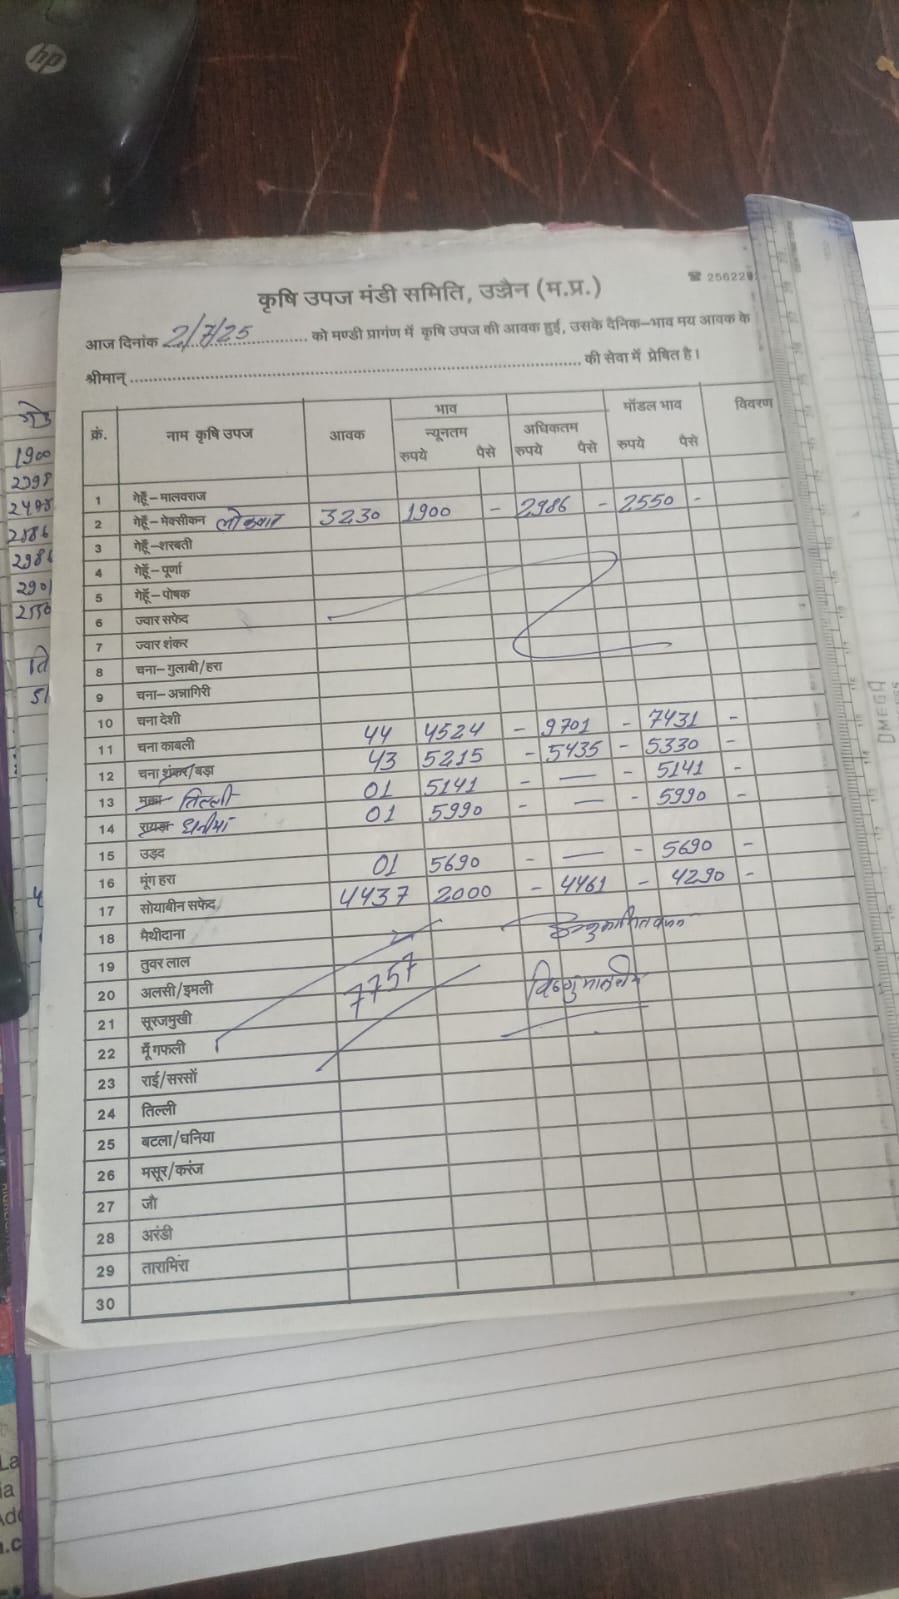 hp
कृषि उपज मंडी समिति, उज्जैन (म.प्र.)
☎ 25622
आज दिनांक 2/7/25 को मण्डी प्रागंण में कृषि उपज की आवक हुई, उसके दैनिक-भाव मय आवक के
श्रीमान् की सेवा में प्रेषित है।
क्रं. नाम कृषि उपज आवक भाव न्यूनतम रुपये पैसे अधिकतम रुपये पैसे मॉडल भाव रुपये पैसे विवरण
1 गेहूँ-मालवराज
2 गेहूँ-मेक्सीकन लोकवान 3230 1900 - 2986 - 2550 -
3 गेहूँ-शरबती
4 गेहूँ-पूर्णा
5 गेहूँ-पोषक
6 ज्वार सफेद
7 ज्वार शंकर
8 चना-गुलाबी/हरा
9 चना-अन्नागिरी
10 चना देशी 44 4524 - 9701 - 7431 -
11 चना काबली 43 5215 - 5435 - 5330 -
12 चना शंकर/बड़ा 01 5141 - — - 5141 -
13 मक्का तिल्ली 01 5990 - — - 5990 -
14 रायड़ा धनीयां
15 उड़द 01 5690 - — - 5690 -
16 मूंग हरा 4437 2000 - 4461 - 4290 -
17 सोयाबीन सफेद
18 मैथीदाना
19 तुवर लाल
20 अलसी/इमली 7757
21 सूरजमुखी
22 मूँगफली
23 राई/सरसों
24 तिल्ली
25 बटला/धनिया
26 मसूर/करंज
27 जौ
28 अरंडी
29 तारामिरा
30
1900
2398
2901
2550
OMEGA